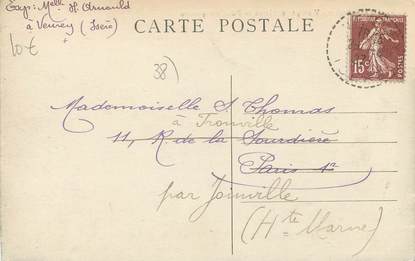 Exp: Melle H Arnould
à Veurey (Isère)
CARTE POSTALE
10€
38)
REPUBLIQUE FRANÇAISE
15c
POSTES
Mademoiselle S. Thomas
à Tronville
11, R. de la Sourdière
Paris 1er
par Joinville
(Hte Marne)